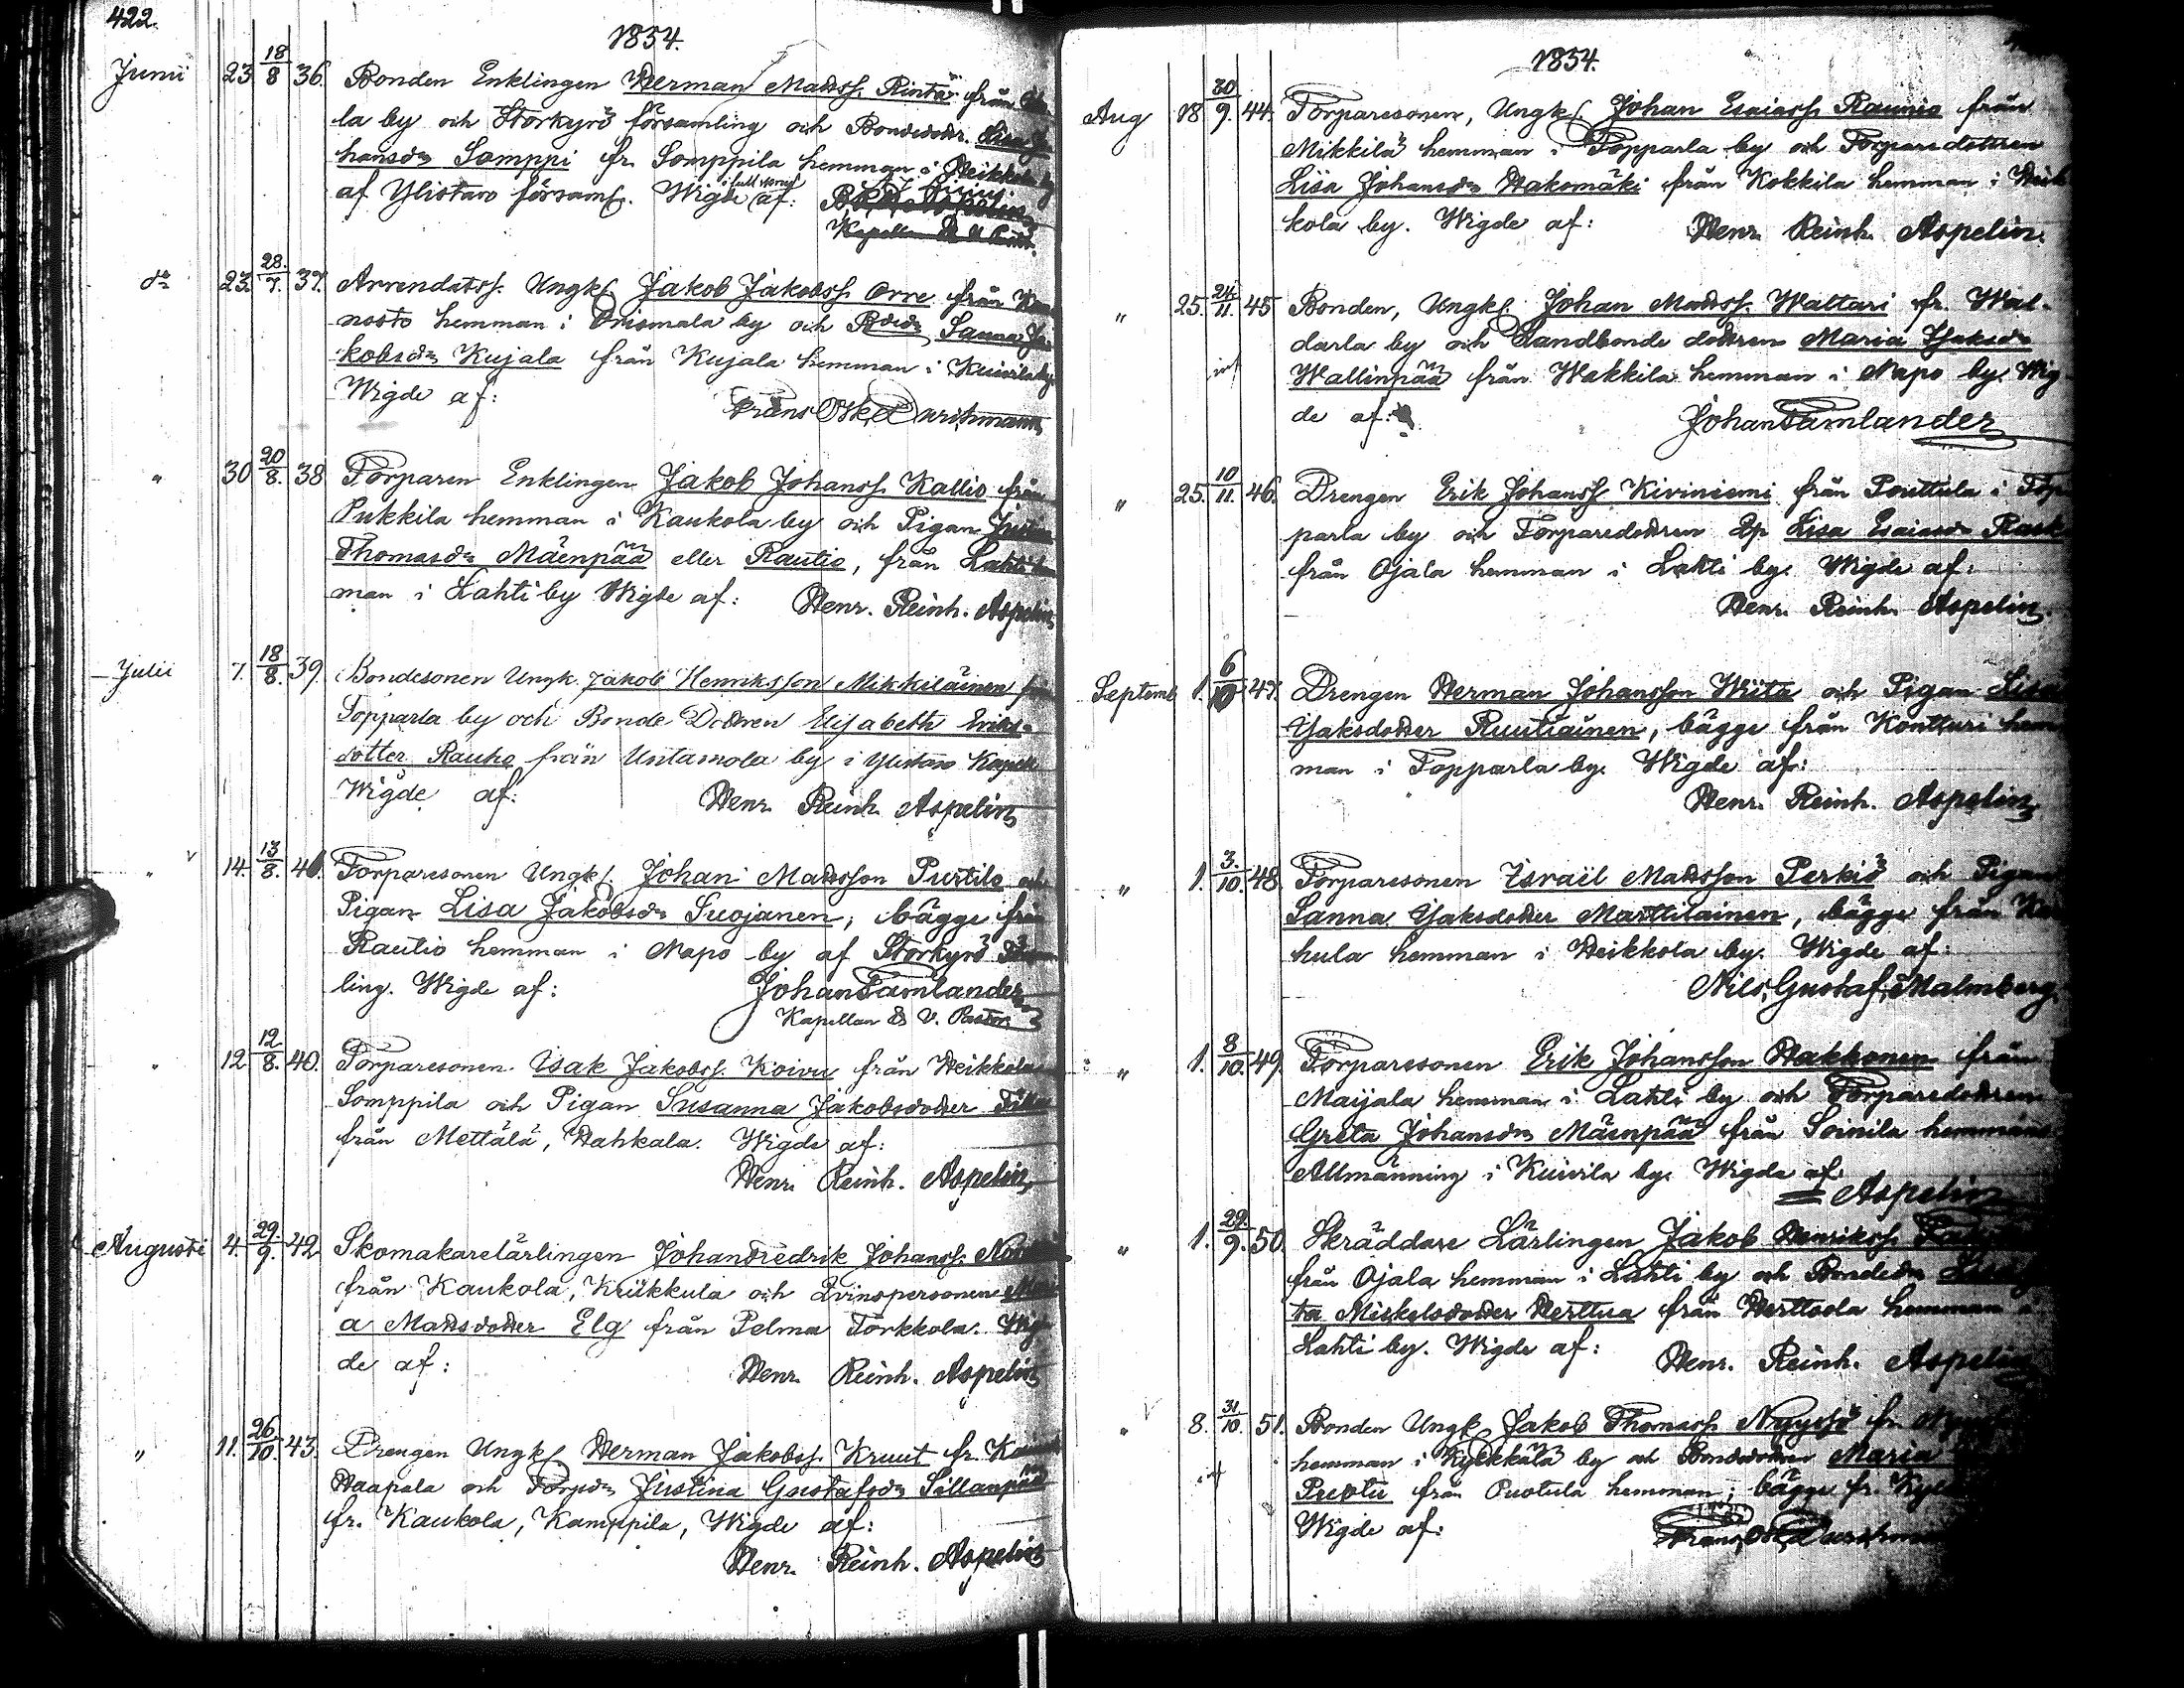 422.
1854.
Junii 23 18/8 36. Bonden Enklingen Herman Matss. Rinta från
la by och Storkyrö församling och Bondedottr. Lisa Jo
hansdr Samppi fr. Somppila hemman i Heikkila by
af Ylistaro församl. Wigde af:
Kapellan
do 23. 28./7. 37. Arrendatss. Ungkl. Jakob Jakobss. Orre från
nosto hemman i Orismala by och Sanna Ja
kobsdr Kujala från Kujala hemman i Kuivila by.
Wigde af: Frans Osk. Durchman
" 30 20/8. 38 Torparen Enklingen Jakob Johanss. Kallio från
Pukkila hemman i Kaukola by och Pigan
Thomasdr Mäenpää eller Rautio, från Lahti hem
man i Lahti by Wigde af: Henr. Reinh. Aspelin
Julii 7. 18/8. 39. Bondesonen Ungk. Jakob Henriksson Mikkiläinen från
Topparla by och Bonde Dottren Elisabeth Eriks-
dotter Rauho från Untamala by i Ylistaro Kapell
Wigde af: Henr. Reinh. Aspelin
" 14. 13/8. 41. Torparesonen Ungkl. Johan Matsson Purtilo och
Pigan Lisa Jakobsdr Suojanen, bägge från
Rautio hemman i Napo by af Storkyrö Försam
ling. Wigde af: Johan Tamlander
Kapellan & V. Pastor
" 12 12/8. 40. Torparesonen Isak Jakobss. Koivu från Heikkola
Somppila och Pigan Susanna Jakobsdotter
från Mettälä, Hahkala. Wigde af:
Henr. Reinh. Aspelin
Augusti 4. 29./9. 42 Skomakarelärlingen Johan Fredrik Johanss.
från Kaukola, Krükkula och Qvinspersonen Mari
a Matsdotter Elg från Pelma Torkkola. Wig
de af: Henr. Reinh. Aspelin
" 11. 26/10. 43. Drengen Ungkl. Herman Jakobss. Kruut fr.
Haapala och Torpdr Justina Gustafsdr Sillanpää
fr. Kaukola, Kamppila, Wigde af:
Henr. Reinh. Aspelin
1854.
Aug 18 30/9. 44. Torparesonen, Ungkl. Johan Esaiass. Raunio från
Mikkilä hemman i Topparla by och Torparedottren
Lisa Johansdr Hakomäki från Kokkila hemman i Heik
kola by. Wigde af: Henr. Reinh. Aspelin.
" 25. 24/11. 45 Bonden, Ungkl. Johan Matss. Waltari fr. Wal-
darla by och Landbonde dottren Maria Isaksdr
Wallinpää från Wakkila hemman i Napo by. Wig
de af: Johan Tamlander
" 25. 10/11. 46. Drengen Erik Johanss. Kiviniemi från Pouttula i Top
parla by och Torparedottren Lisa Esaiasdr
från Ojala hemman i Lahti by. Wigde af:
Henr. Reinh. Aspelin.
Septemb 1. 6/10 47. Drengen Herman Johansson Wiita och Pigan Lisa
Isaksdotter Ruutiainen, bägge från Kontturi hem
man i Topparla by. Wigde af:
Henr. Reinh. Aspelin
" 1. 3./10. 48. Torparesonen Israël Matsson Perkiö och Pigan
Sanna Isaksdotter Marttilainen, bägge från
hula hemman i Heikkola by. Wigde af:
Nils Gustaf Malmberg.
" 1. 8/10. 49. Torparesonen Erik Johansson Hakkonen från
Maijala hemman i Lahti by och Torparedottren
Greta Johansdr Mäenpää från Soinila hemmans
Allmänning i Kuivila by. Wigde af
= Aspelin
" 1. 29./9. 50. Skräddare Lärlingen Jakob Henrikss.
från Ojala hemman i Lahti by och Bondedr
ta Mickelsdotter Herttua från Herttuola hemman i
Lahti by. Wigde af: Henr. Reinh. Aspelin
" 8. 31/10. 51. Bonden Ungk. Jakob Thomass. Nyyssö fr.
hemman i Kylkkälä by och Bondedottren Maria
Puotu från Puotula hemman, bägge fr.
Wigde af: Frans Osk. Durchman